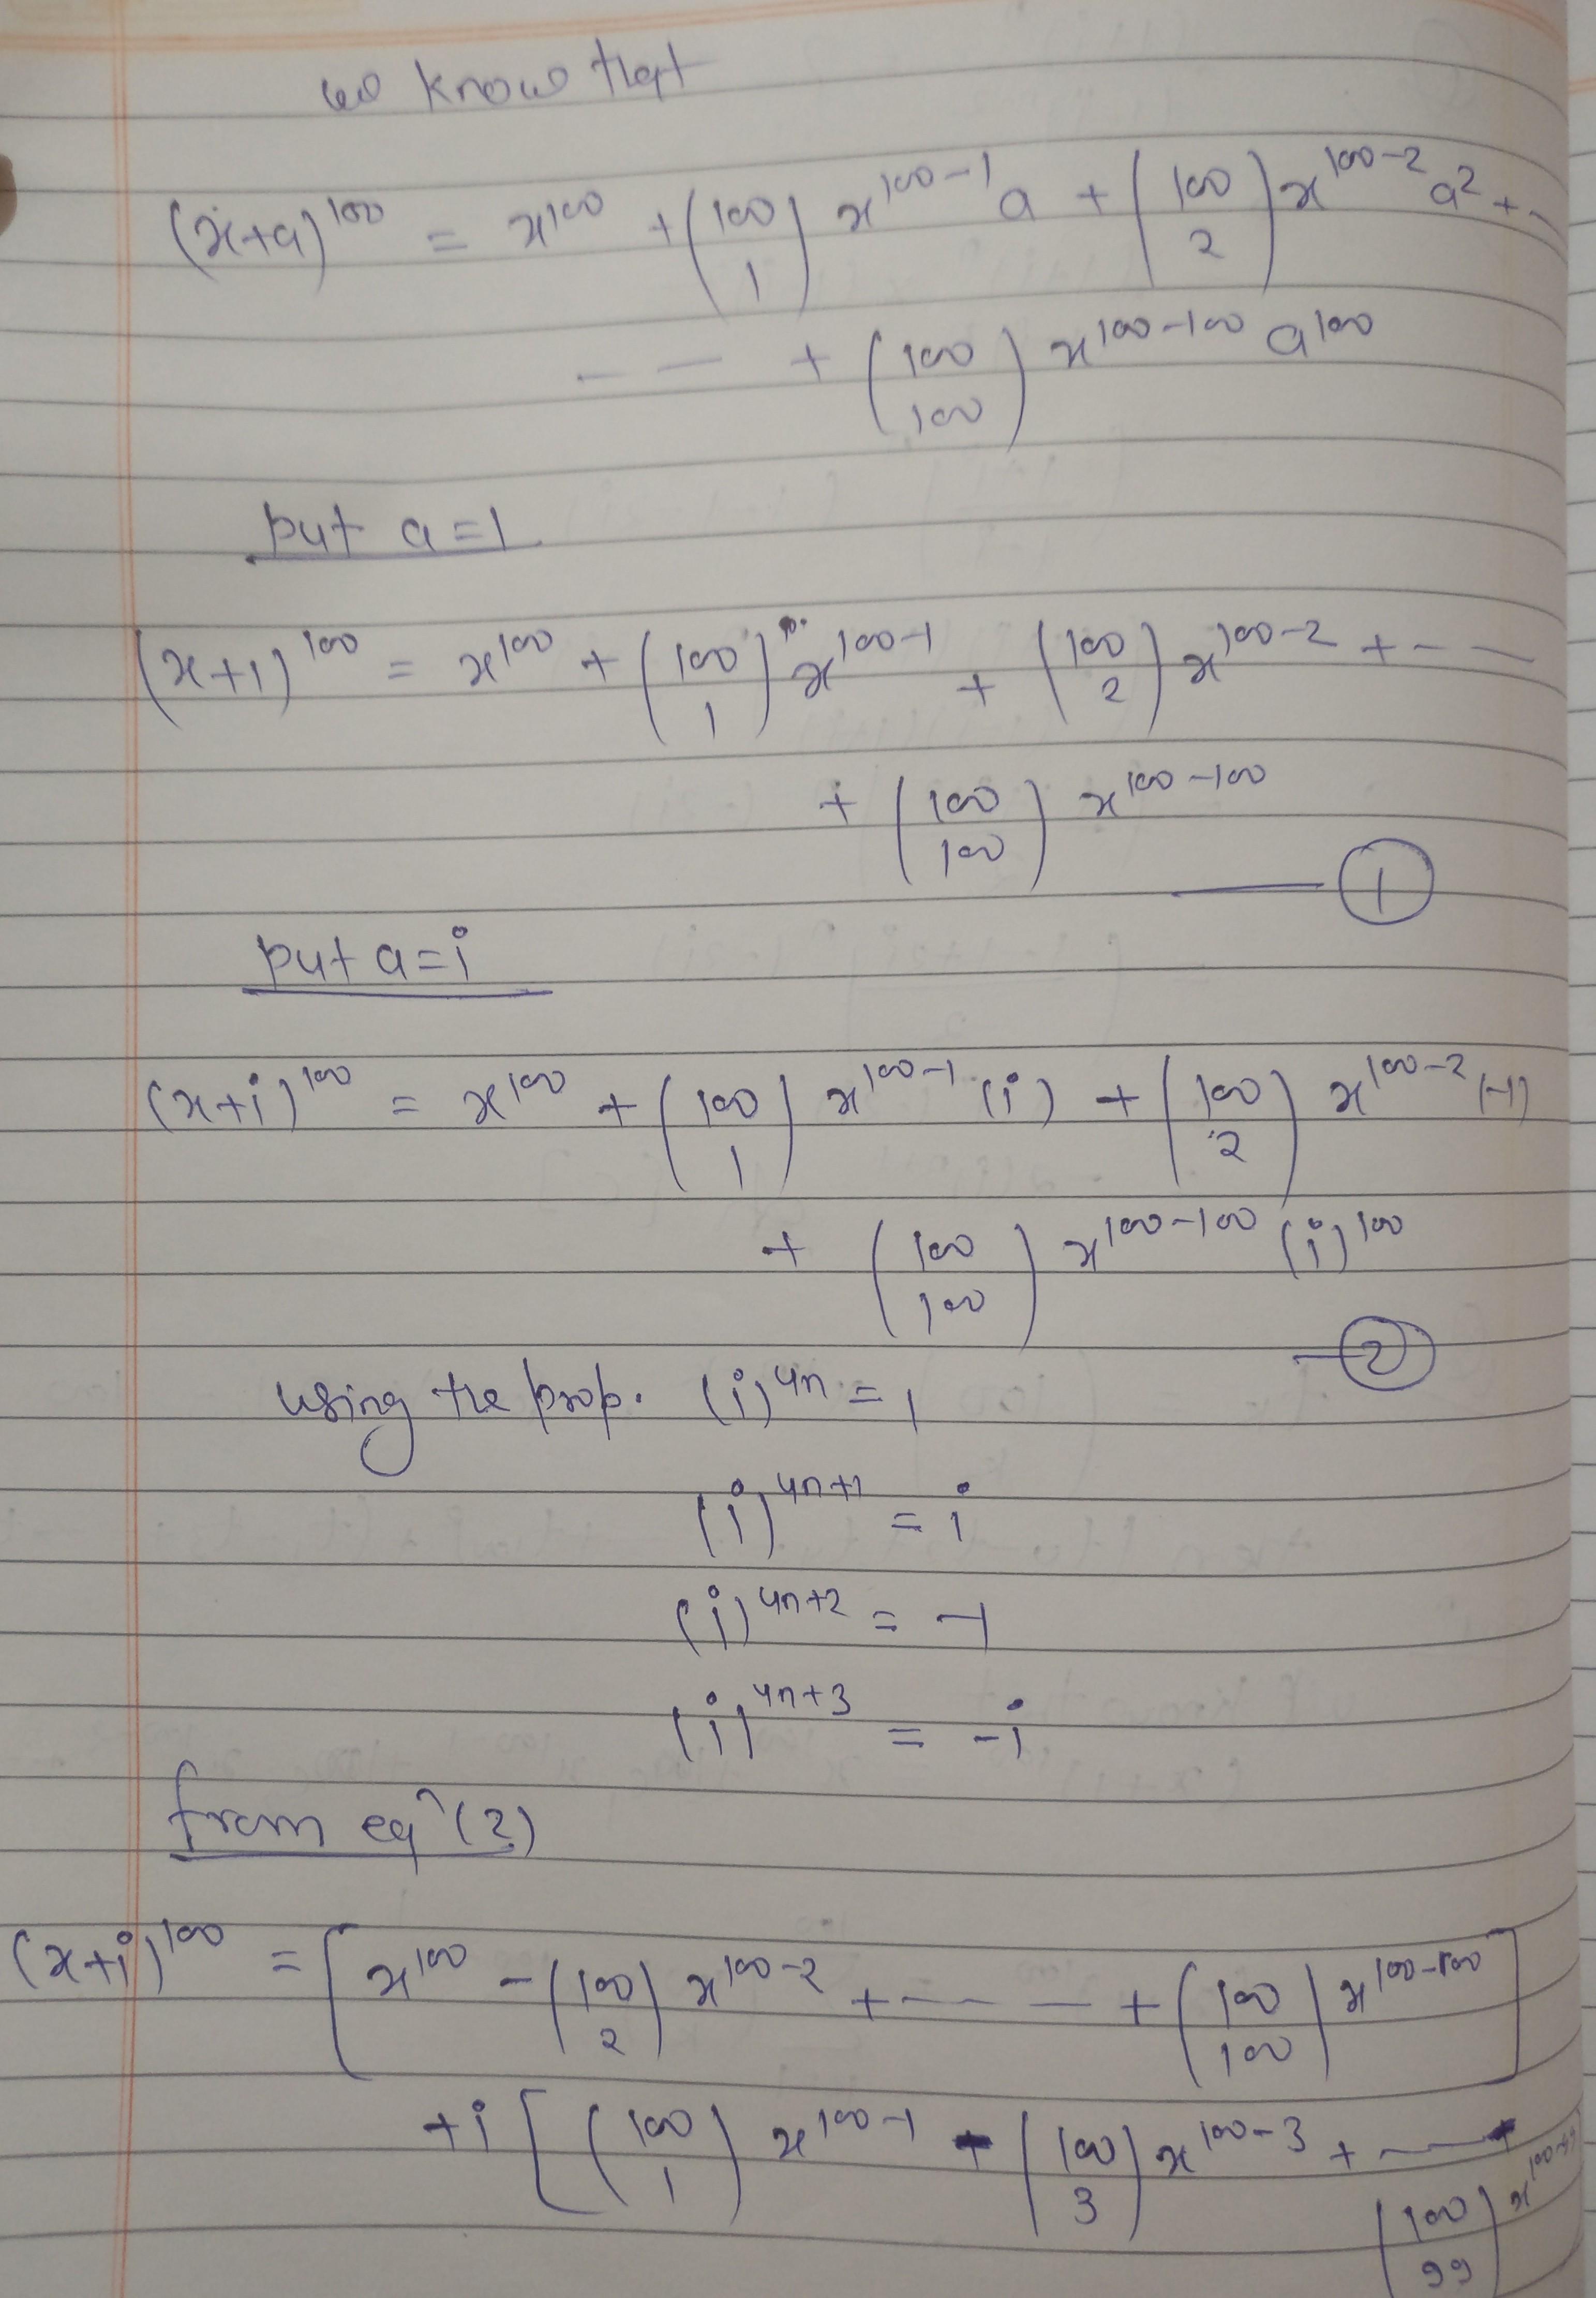 we know that
(x+a)^100 = x^100 + (100 1) x^100-1 a + (100 2) x^100-2 a^2 + --
-- -- + (100 100) x^100-100 a^100
put a=1
(x+1)^100 = x^100 + (100 1) x^100-1 + (100 2) x^100-2 + -- --
+ (100 100) x^100-100
—— ①
put a=i
(x+i)^100 = x^100 + (100 1) x^100-1 (i) + (100 2) x^100-2 (-1)
+ (100 100) x^100-100 (i)^100
— ②
using the prop. (i)^4n = 1
(i)^4n+1 = i
(i)^4n+2 = -1
(i)^4n+3 = -i
from eqn (2)
(x+i)^100 = [ x^100 - (100 2) x^100-2 + -- -- -- + (100 100) x^100-100 ]
+i [ (100 1) x^100-1 - (100 3) x^100-3 + -- --
(100 99) x^100-99